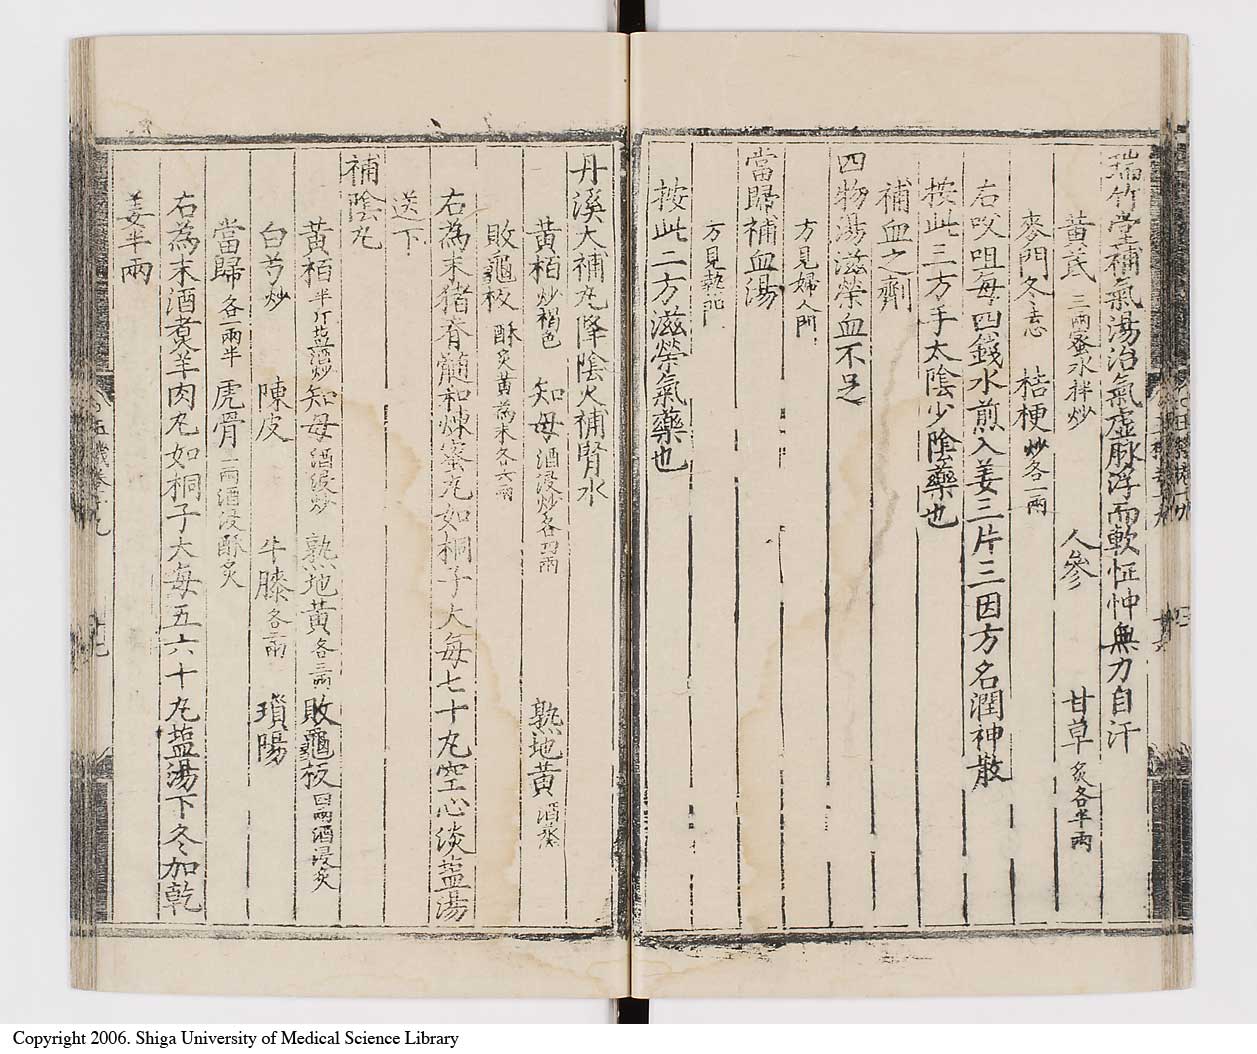 瑞竹堂補氣湯治氣虛脉浮而軟怔忡無力自汗
黃芪三兩蜜水拌炒 人參 甘草炙各半兩
麥門冬去心 桔梗炒各一兩
右㕮咀每四錢水煎入姜三片三因方名潤神散
按此三方手太陰少陰藥也
補血之劑
四物湯滋榮血不足
方見婦人門
當歸補血湯
方見熱門
按此二方滋榮氣藥也
丹溪大補丸降陰火補腎水
黃栢炒褐色 知母酒浸炒各四兩 熟地黃酒蒸
敗龜板酥炙黃為末各六兩
右為末猪脊髓和煉蜜丸如桐子大每七十丸空心淡盐湯
送下
補陰丸
黃栢半斤盐酒炒 知母酒浸炒 熟地黃各三兩 敗龜板四兩酒浸炙
白芍炒 陳皮 牛膝各二兩 瑣陽
當歸各一兩半 虎骨一兩酒浸酥炙
右為末酒煮羊肉丸如桐子大每五六十丸盐湯下冬加乾
姜半兩
Copyright 2006. Shiga University of Medical Science Library